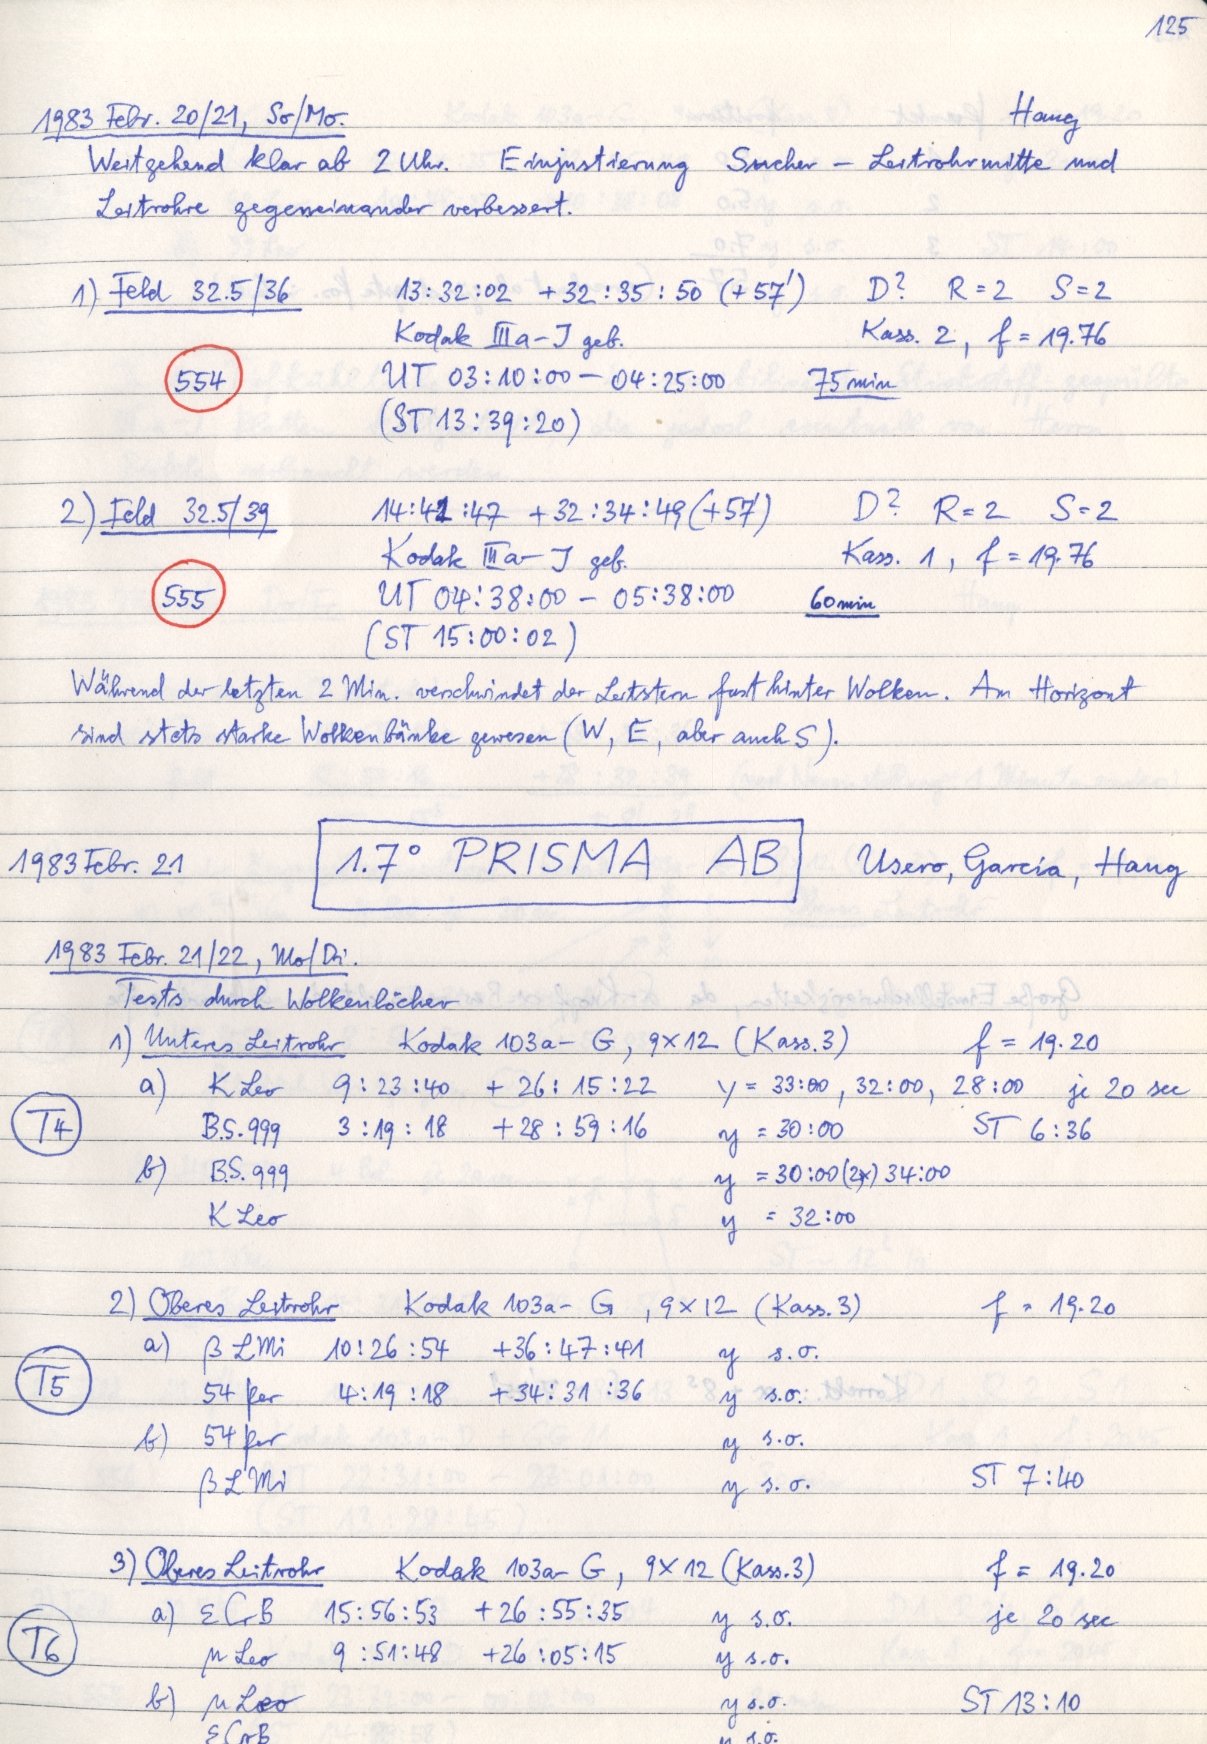 125
1983 Febr. 20/21, So/Mo. Haug
Weitgehend klar ab 2 Uhr. Einjustierung Sucher – Leitrohrmitte und
Leitrohre gegeneinander verbessert.
1) Feld 32.5/36 13:32:02 +32:35:50 (+57') D? R=2 S=2
Kodak IIIa-J geb. Kass. 2, f = 19.76
554 UT 03:10:00 – 04:25:00 75min
(ST 13:39:20)
2) Feld 32.5/39 14:41:47 +32:34:49 (+57') D? R=2 S=2
Kodak IIIa-J geb. Kass. 1, f = 19.76
555 UT 04:38:00 – 05:38:00 60min
(ST 15:00:02)
Während der letzten 2 Min. verschwindet der Leitstern fast hinter Wolken. Am Horizont
sind stets starke Wolkenbänke gewesen (W, E, aber auch S).
1983 Febr. 21 1.7° PRISMA AB Usero, García, Haug
1983 Febr. 21/22, Mo/Di.
Tests durch Wolkenlöcher
1) Unteres Leitrohr Kodak 103a-G, 9×12 (Kass.3) f = 19.20
a) K Leo 9:23:40 +26:15:22 y = 33:00, 32:00, 28:00 je 20 sec
T4 B.S.999 3:19:18 +28:59:16 y = 30:00 ST 6:36
b) B.S.999 y = 30:00(2×) 34:00
K Leo y = 32:00
2) Oberes Leitrohr Kodak 103a-G, 9×12 (Kass.3) f = 19.20
a) β LMi 10:26:54 +36:47:41 y s.o.
T5 54 Per 4:19:18 +34:31:36 y s.o.
b) 54 Per y s.o.
β LMi y s.o. ST 7:40
3) Oberes Leitrohr Kodak 103a-G, 9×12 (Kass.3) f = 19.20
a) ε CrB 15:56:53 +26:55:35 y s.o. je 20 sec
T6 μ Leo 9:51:48 +26:05:15 y s.o.
b) μ Leo y s.o. ST 13:10
ε CrB y s.o.